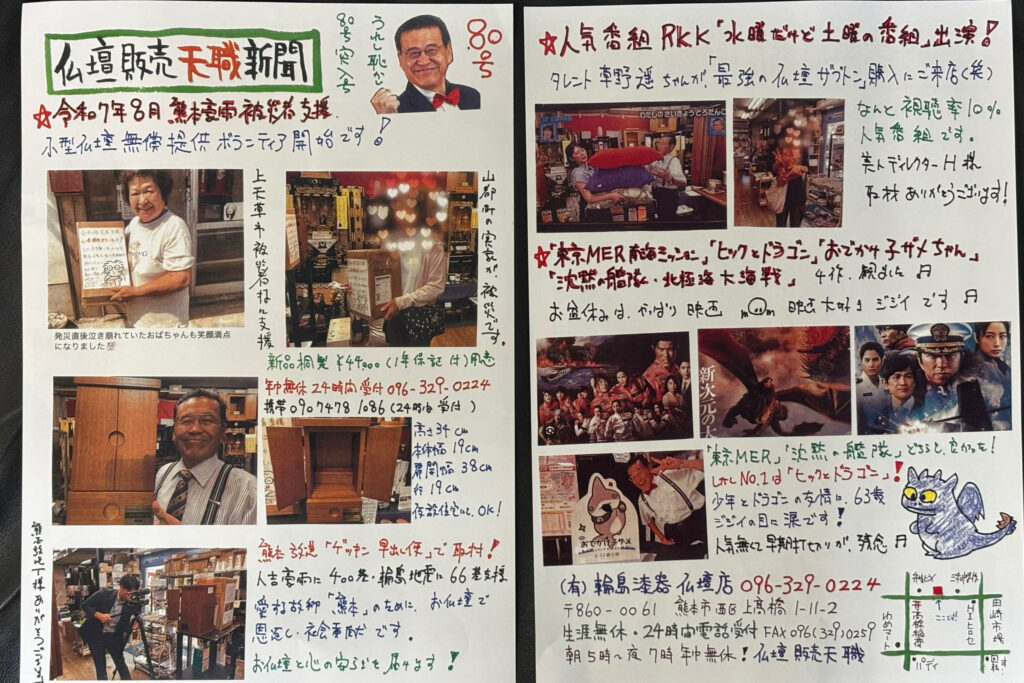 仏壇販売天職新聞
うれし恥かし
80号突入号
80号
☆令和7年8月 熊本豪雨被災者支援
小型仏壇無償提供ボランティア開始です!
上天草市被災者様に支援
山都町の実家が、被災です。
発災直後泣き崩れていたおばちゃんも笑顔満点
になりました💯
新品桐製 ¥44,000(1年保証付)用意
年中無休24時間受付 096-329-0224
携帯 090 7478 1086 (24時間受付)
高さ34cm
本体幅19cm
扉開幅38cm
行19cm
仮設住宅にも、OK!
熊本放送「ゲツキン早出し便」で取材!
人吉豪雨に400基・輪島地震に66基支援
愛する故郷「熊本」のために、お仏壇で
恩返し・社会貢献です。
お仏壇と心の安らぎを届けます!
☆人気番組RKK「水曜だけど土曜の番組」出演!
タレント草野遥ちゃんが、「最強の仏壇ザブトン」購入にご来店(笑)
わたしのさいきょうどろだんご
なんと視聴率10%
人気番組です。
美人ディレクターH様
取材ありがとうございます!
☆「東京MER 南海ミッション」「ヒックとドラゴン」「おでかけ子ザメちゃん」
「沈黙の艦隊・北極海大海戦」 4作、観ました♬
お盆休みは、やっぱり映画 映画大好きジジイです♬
新次元の
「東京MER」「沈黙の艦隊」どちらも、良かった!
しかしNo.1は「ヒックとドラゴン」!
少年とドラゴンの友情に、63歳
ジジイの目に涙です!
人気無くて早期打ち切りが、残念♬
おでかけ子ザメ
(有)輪島漆器仏壇店 096-329-0224
〒860-0061 熊本市西区上高橋1-11-2
生涯無休・24時間電話受付 FAX 096(329)0259
朝5時~夜7時年中無休! 仏壇販売天職
ここです
ゆめマート
高橋稲荷
HIヒロセ
田崎市場